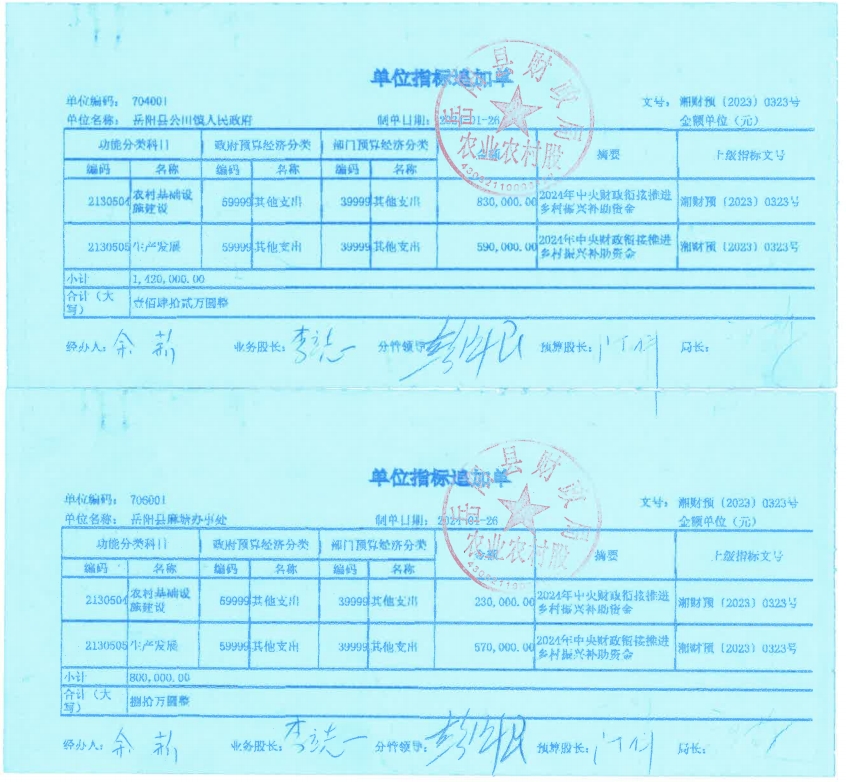 单位指标追加单
单位编码： 704001 文号：湘财预〔2023〕0323号
单位名称： 岳阳县公田镇人民政府 制单日期：2024-01-26 金额单位（元）
功能分类科目 政府预算经济分类 部门预算经济分类 金额 摘要 上级指标文号
编码 名称 编码 名称 编码 名称
2130504 农村基础设施建设 59999 其他支出 39999 其他支出 830,000.00 2024年中央财政衔接推进乡村振兴补助资金 湘财预〔2023〕0323号
2130505 生产发展 59999 其他支出 39999 其他支出 590,000.00 2024年中央财政衔接推进乡村振兴补助资金 湘财预〔2023〕0323号
小计 1,420,000.00
合计（大写） 壹佰肆拾贰万圆整
经办人： 业务股长： 李志一 分管领导： 预算股长： 局长：
县财政局
农业农村股
单位指标追加单
单位编码： 706001 文号：湘财预〔2023〕0323号
单位名称： 岳阳县麻塘办事处 制单日期：2024-01-26 金额单位（元）
功能分类科目 政府预算经济分类 部门预算经济分类 金额 摘要 上级指标文号
编码 名称 编码 名称 编码 名称
2130504 农村基础设施建设 59999 其他支出 39999 其他支出 230,000.00 2024年中央财政衔接推进乡村振兴补助资金 湘财预〔2023〕0323号
2130505 生产发展 59999 其他支出 39999 其他支出 570,000.00 2024年中央财政衔接推进乡村振兴补助资金 湘财预〔2023〕0323号
小计 800,000.00
合计（大写） 捌拾万圆整
经办人： 业务股长： 李志一 分管领导： 预算股长： 局长：
县财政局
农业农村股